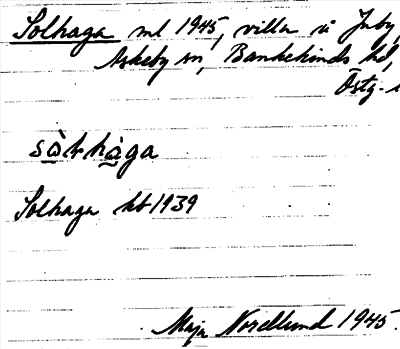 Solhaga ml 1945, villa i Juby,
Askeby sn, Bankekinds hd,
Östg.
sòlhàga
Solhaga kb 1939
Maja Nordlund 1945.